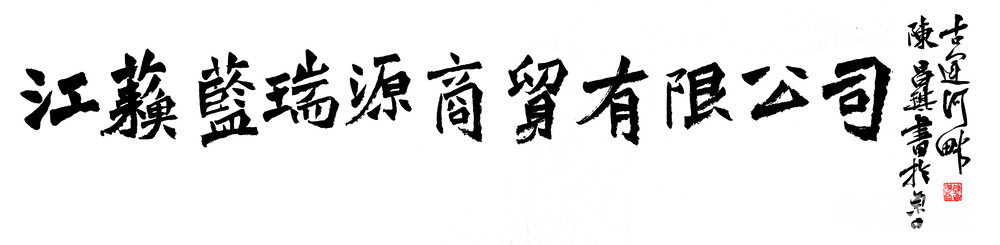 江蘇藍瑞源商貿有限公司
陳昌興書於京口
古運河畔